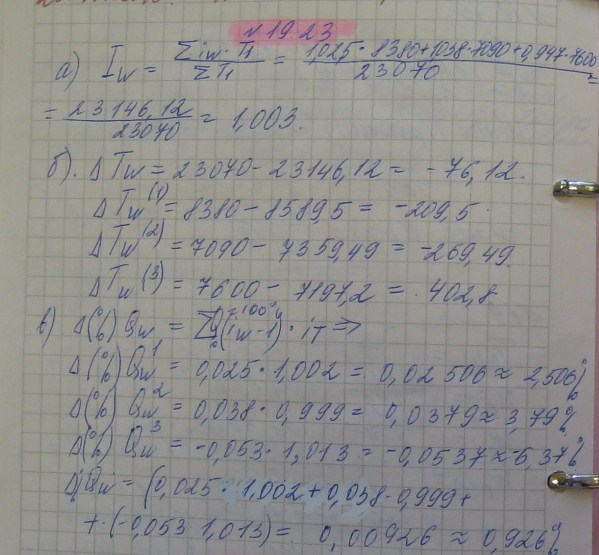 № 19.23
а) Iw = Σ iw · T1 / Σ T1 = 1,025 · 8380 + 1038 · 7090 + 0,947 · 7600 / 23070 =
= 23146,12 / 23070 = 1,003.
б). ΔTw = 23070 - 23146,12 = -76,12.
ΔTw(1) = 8380 - 8589,5 = -209,5.
ΔTw(2) = 7090 - 7359,49 = -269,49.
ΔTw(3) = 7600 - 7197,2 = 402,8
в) Δ(%) Qw = (iw-1) · iт ⇒
Δ(%) Qw1 = 0,025 · 1,002 = 0,02506 ≈ 2,506%
Δ(%) Qw2 = 0,038 · 0,999 = 0,0379 ≈ 3,79%
Δ(%) Qw3 = -0,053 · 1,013 = -0,0537 ≈ -5,37%
ΔQw = (0,025 · 1,002 + 0,038 · 0,999 +
+ (-0,053 · 1,013) = 0,00926 ≈ 0,926%